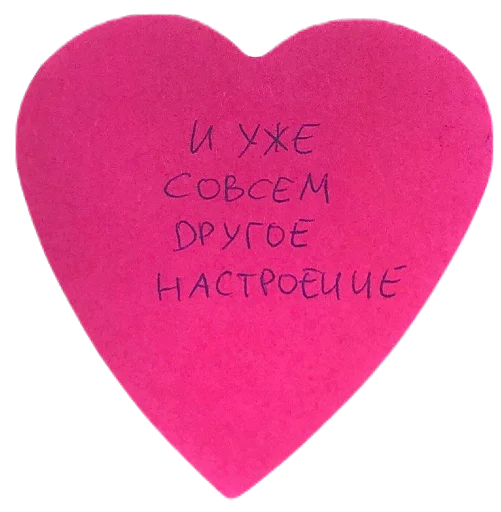 И УЖЕ
СОВСЕМ
ДРУГОЕ
НАСТРОЕНИЕ